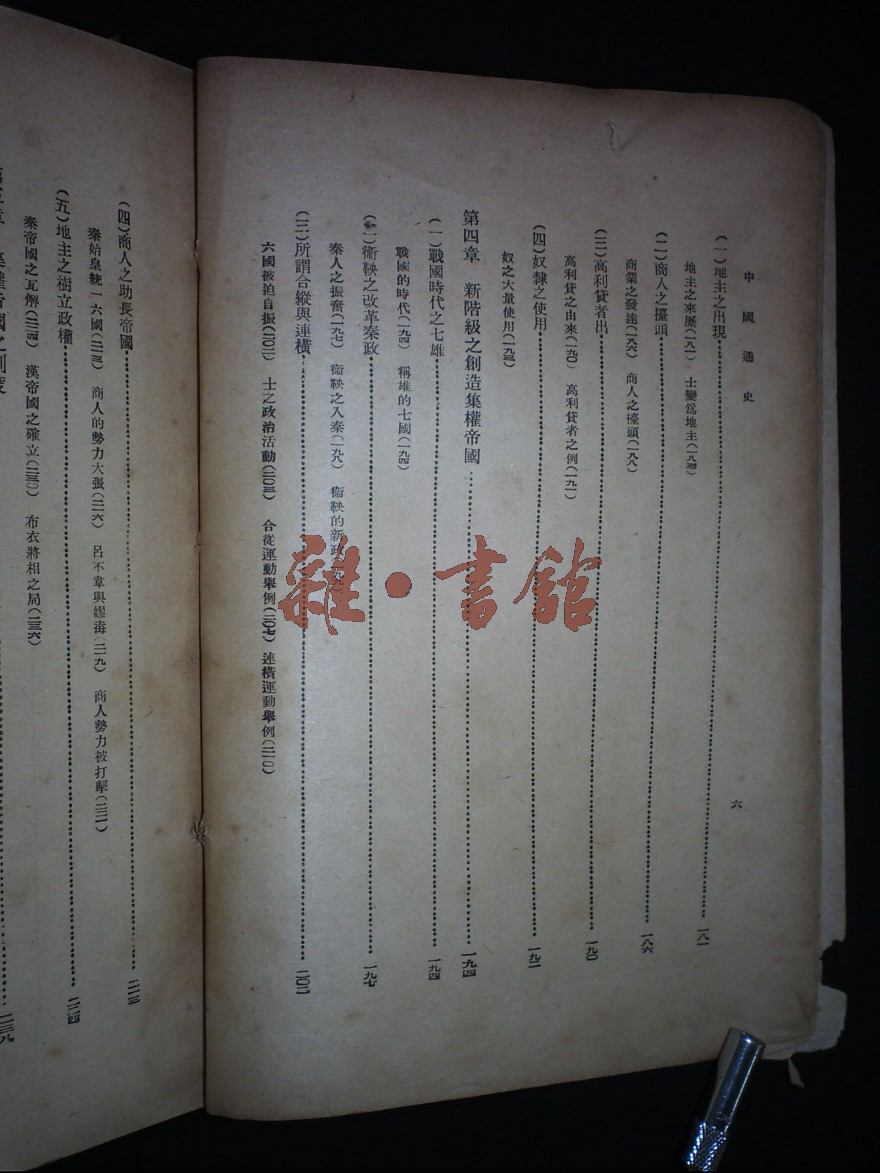 中國通史
六
(一)地主之出現 一八一
地主之來歷(一八一) 士變爲地主(一八四)
(二)商人之擡頭 一八六
商業之發達(一八六) 商人之擡頭(一八八)
(三)高利貸者出 一九〇
高利貸之由來(一九〇) 高利貸者之例(一九一)
(四)奴隸之使用 一九二
奴之大量使用(一九三)
第四章 新階級之創造集權帝國 一九四
(一)戰國時代之七雄 一九四
戰國的時代(一九四) 稱雄的七國(一九四)
(二)衞鞅之改革秦政 一九七
秦人之振奮(一九七) 衞鞅之入秦(一九八) 衞鞅的新政
(三)所謂合縱與連橫 二〇二
六國被迫自振(二〇二) 士之政治活動(二〇三) 合從運動舉例(二〇七) 連橫運動舉例(二一〇)
(四)商人之助長帝國 二一三
秦始皇統一六國(二一三) 商人的勢力大張(二一六) 呂不韋與嫪毐(二一九) 商人勢力被打擊(二二一)
(五)地主之樹立政權 二二四
秦帝國之瓦解(二二四) 漢帝國之確立(二三〇) 布衣將相之局(二三六)
集權帝國之制度 二三八
雜·書館